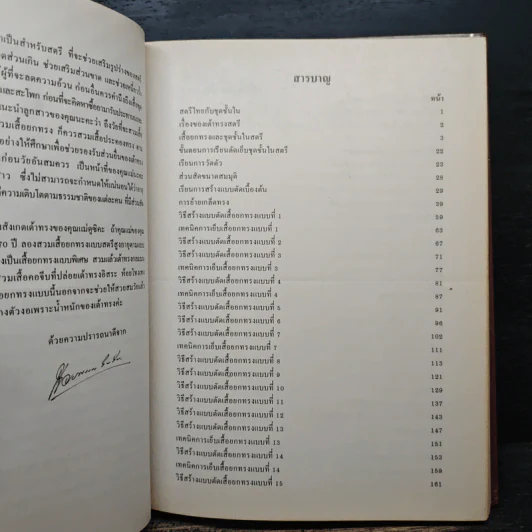 าเป็นสำหรับสตรี ที่จะช่วยเสริมรูปร่างของสตรี
ดส่วนเกิน ช่วยเสริมส่วนขาด
ผู้ที่จะลดความอ้วน ก่อนอื่นควรคำนึงถึงเสื้อชุด
และสะโพก ก่อนที่จะคิดหาซื้อยามารับประทาน
แนะนำลูกสาวของคุณนะคะว่า ถึงวัยที่จะสวม
สวมเสื้อยกทรง ก็ควรสวมเสื้อประคองทรง
อย่างให้ศึกษาเพื่อช่วยรองรับส่วนอื่นของเต้าทรง
ก่อนวัยอันสมควร เป็นหน้าที่ของคุณแม่
าว ซึ่งไม่สามารถจะกำหนดให้แน่นอนได้ว่า
ความเติบโตตามธรรมชาติของแต่ละคน ที่มีส่วน
สังเกตเต้าทรงของคุณแม่ดูซิคะ ถ้าคุณแม่ของคุณ
70 ปี ลองสวมเสื้อยกทรงแบบสตรีสูงอายุตามแบบ
งเป็นเสื้อยกทรงแบบพิเศษ สวมแล้วเต้าทรงของ
วมเสื้อคอจีบที่ปล่อยเต้าทรงอิสระ ห้อยโหน
อยกทรงแบบนี้นอกจากจะช่วยให้สวยสมวัยแล้ว
างตัวงอเพราะน้ำหนักของเต้าทรงค่ะ
ด้วยความปรารถนาดีจาก
สารบาญ
หน้า
สตรีไทยกับชุดชั้นใน 1
เรื่องของเต้าทรงสตรี 2
เสื้อยกทรงและชุดชั้นในสตรี 3
ขั้นตอนการเรียนตัดเย็บชุดชั้นในสตรี 22
เรียนการวัดตัว 23
ส่วนสัดขนาดสมมุติ 28
เรียนการสร้างแบบตัดเบื้องต้น 29
การย้ายเกล็ดทรง 39
วิธีสร้างแบบตัดเสื้อยกทรงแบบที่ 1 59
เทคนิคการเย็บเสื้อยกทรงแบบที่ 1 63
วิธีสร้างแบบตัดเสื้อยกทรงแบบที่ 2 67
วิธีสร้างแบบตัดเสื้อยกทรงแบบที่ 3 71
เทคนิคการเย็บเสื้อยกทรงแบบที่ 3 77
วิธีสร้างแบบตัดเสื้อยกทรงแบบที่ 4 81
เทคนิคการเย็บเสื้อยกทรงแบบที่ 4 87
วิธีสร้างแบบตัดเสื้อยกทรงแบบที่ 5 91
วิธีสร้างแบบตัดเสื้อยกทรงแบบที่ 6 96
วิธีสร้างแบบตัดเสื้อยกทรงแบบที่ 7 102
เทคนิคการเย็บเสื้อยกทรงแบบที่ 7 111
วิธีสร้างแบบตัดเสื้อยกทรงแบบที่ 8 113
วิธีสร้างแบบตัดเสื้อยกทรงแบบที่ 9 121
วิธีสร้างแบบตัดเสื้อยกทรงแบบที่ 10 129
วิธีสร้างแบบตัดเสื้อยกทรงแบบที่ 11 137
วิธีสร้างแบบตัดเสื้อยกทรงแบบที่ 12 143
วิธีสร้างแบบตัดเสื้อยกทรงแบบที่ 13 147
เทคนิคการเย็บเสื้อยกทรงแบบที่ 13 151
วิธีสร้างแบบตัดเสื้อยกทรงแบบที่ 14 153
เทคนิคการเย็บเสื้อยกทรงแบบที่ 14 159
วิธีสร้างแบบตัดเสื้อยกทรงแบบที่ 15 161